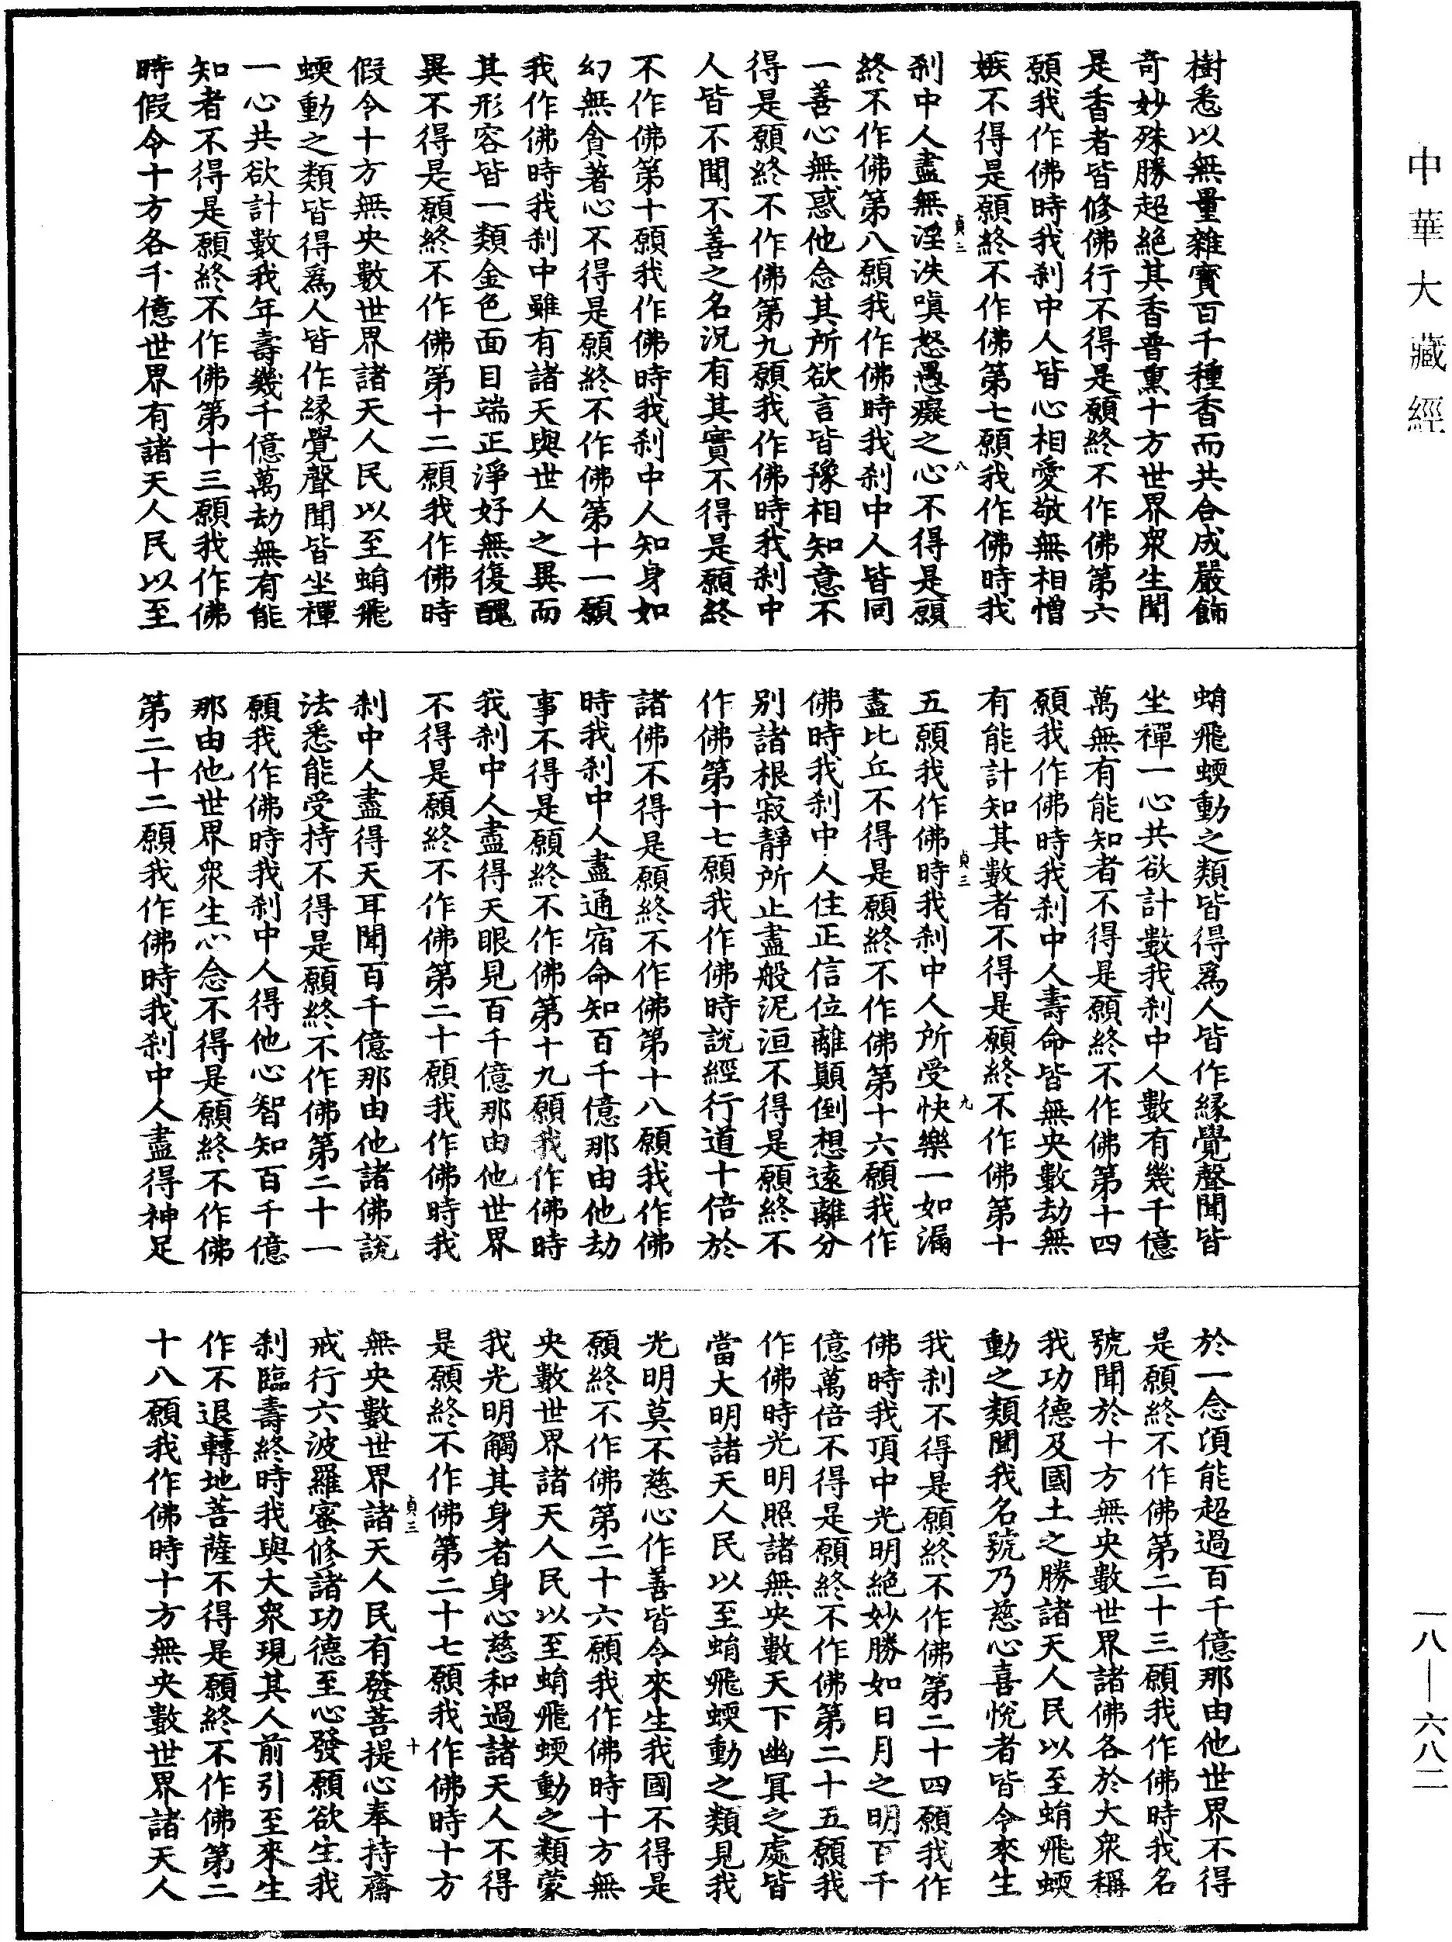 中華大藏經
樹悉以無量雜寶百千種香而共合成嚴飾
奇妙殊勝超絕其香普熏十方世界衆生聞
是香者皆修佛行不得是願終不作佛第六
願我作佛時我刹中人皆心相愛敬無相憎
嫉不得是願終不作佛第七願我作佛時我
貞三
刹中人盡無淫泆嗔怒愚癡之心不得是願
八
終不作佛第八願我作佛時我刹中人皆同
一善心無惑他念其所欲言皆豫相知意不
得是願終不作佛第九願我作佛時我刹中
人皆不聞不善之名況有其實不得是願終
不作佛第十願我作佛時我刹中人知身如
幻無貪著心不得是願終不作佛第十一願
我作佛時我刹中雖有諸天與世人之異而
其形容皆一類金色面目端正淨好無復醜
異不得是願終不作佛第十二願我作佛時
假令十方無央數世界諸天人民以至蜎飛
蝡動之類皆得爲人皆作緣覺聲聞皆坐禪
一心共欲計數我年壽幾千億萬劫無有能
知者不得是願終不作佛第十三願我作佛
時假令十方各千億世界有諸天人民以至
蜎飛蝡動之類皆得爲人皆作緣覺聲聞皆
坐禪一心共欲計數我刹中人數有幾千億
萬無有能知者不得是願終不作佛第十四
願我作佛時我刹中人壽命皆無央數劫無
有能計知其數者不得是願終不作佛第十
貞三
五願我作佛時我刹中人所受快樂一如漏
九
盡比丘不得是願終不作佛第十六願我作
佛時我刹中人住正信位離顛倒想遠離分
別諸根寂靜所止盡般泥洹不得是願終不
作佛第十七願我作佛時說經行道十倍於
諸佛不得是願終不作佛第十八願我作佛
時我刹中人盡通宿命知百千億那由他劫
事不得是願終不作佛第十九願我作佛時
我刹中人盡得天眼見百千億那由他世界
不得是願終不作佛第二十願我作佛時我
刹中人盡得天耳聞百千億那由他諸佛說
法悉能受持不得是願終不作佛第二十一
願我作佛時我刹中人得他心智知百千億
那由他世界衆生心念不得是願終不作佛
第二十二願我作佛時我刹中人盡得神足
於一念頃能超過百千億那由他世界不得
是願終不作佛第二十三願我作佛時我名
號聞於十方無央數世界諸佛各於大衆稱
我功德及國土之勝諸天人民以至蜎飛蝡
動之類聞我名號乃慈心喜悅者皆令來生
我刹不得是願終不作佛第二十四願我作
佛時我頂中光明絕妙勝如日月之明百千
億萬倍不得是願終不作佛第二十五願我
作佛時光明照諸無央數天下幽冥之處皆
當大明諸天人民以至蜎飛蝡動之類見我
光明莫不慈心作善皆令來生我國不得是
願終不作佛第二十六願我作佛時十方無
央數世界諸天人民以至蜎飛蝡動之類蒙
我光明觸其身者身心慈和過諸天人不得
是願終不作佛第二十七願我作佛時十方
貞三
無央數世界諸天人民有發菩提心奉持齋
十
戒行六波羅蜜修諸功德至心發願欲生我
刹臨壽終時我與大衆現其人前引至來生
作不退轉地菩薩不得是願終不作佛第二
十八願我作佛時十方無央數世界諸天人
一八—六八二